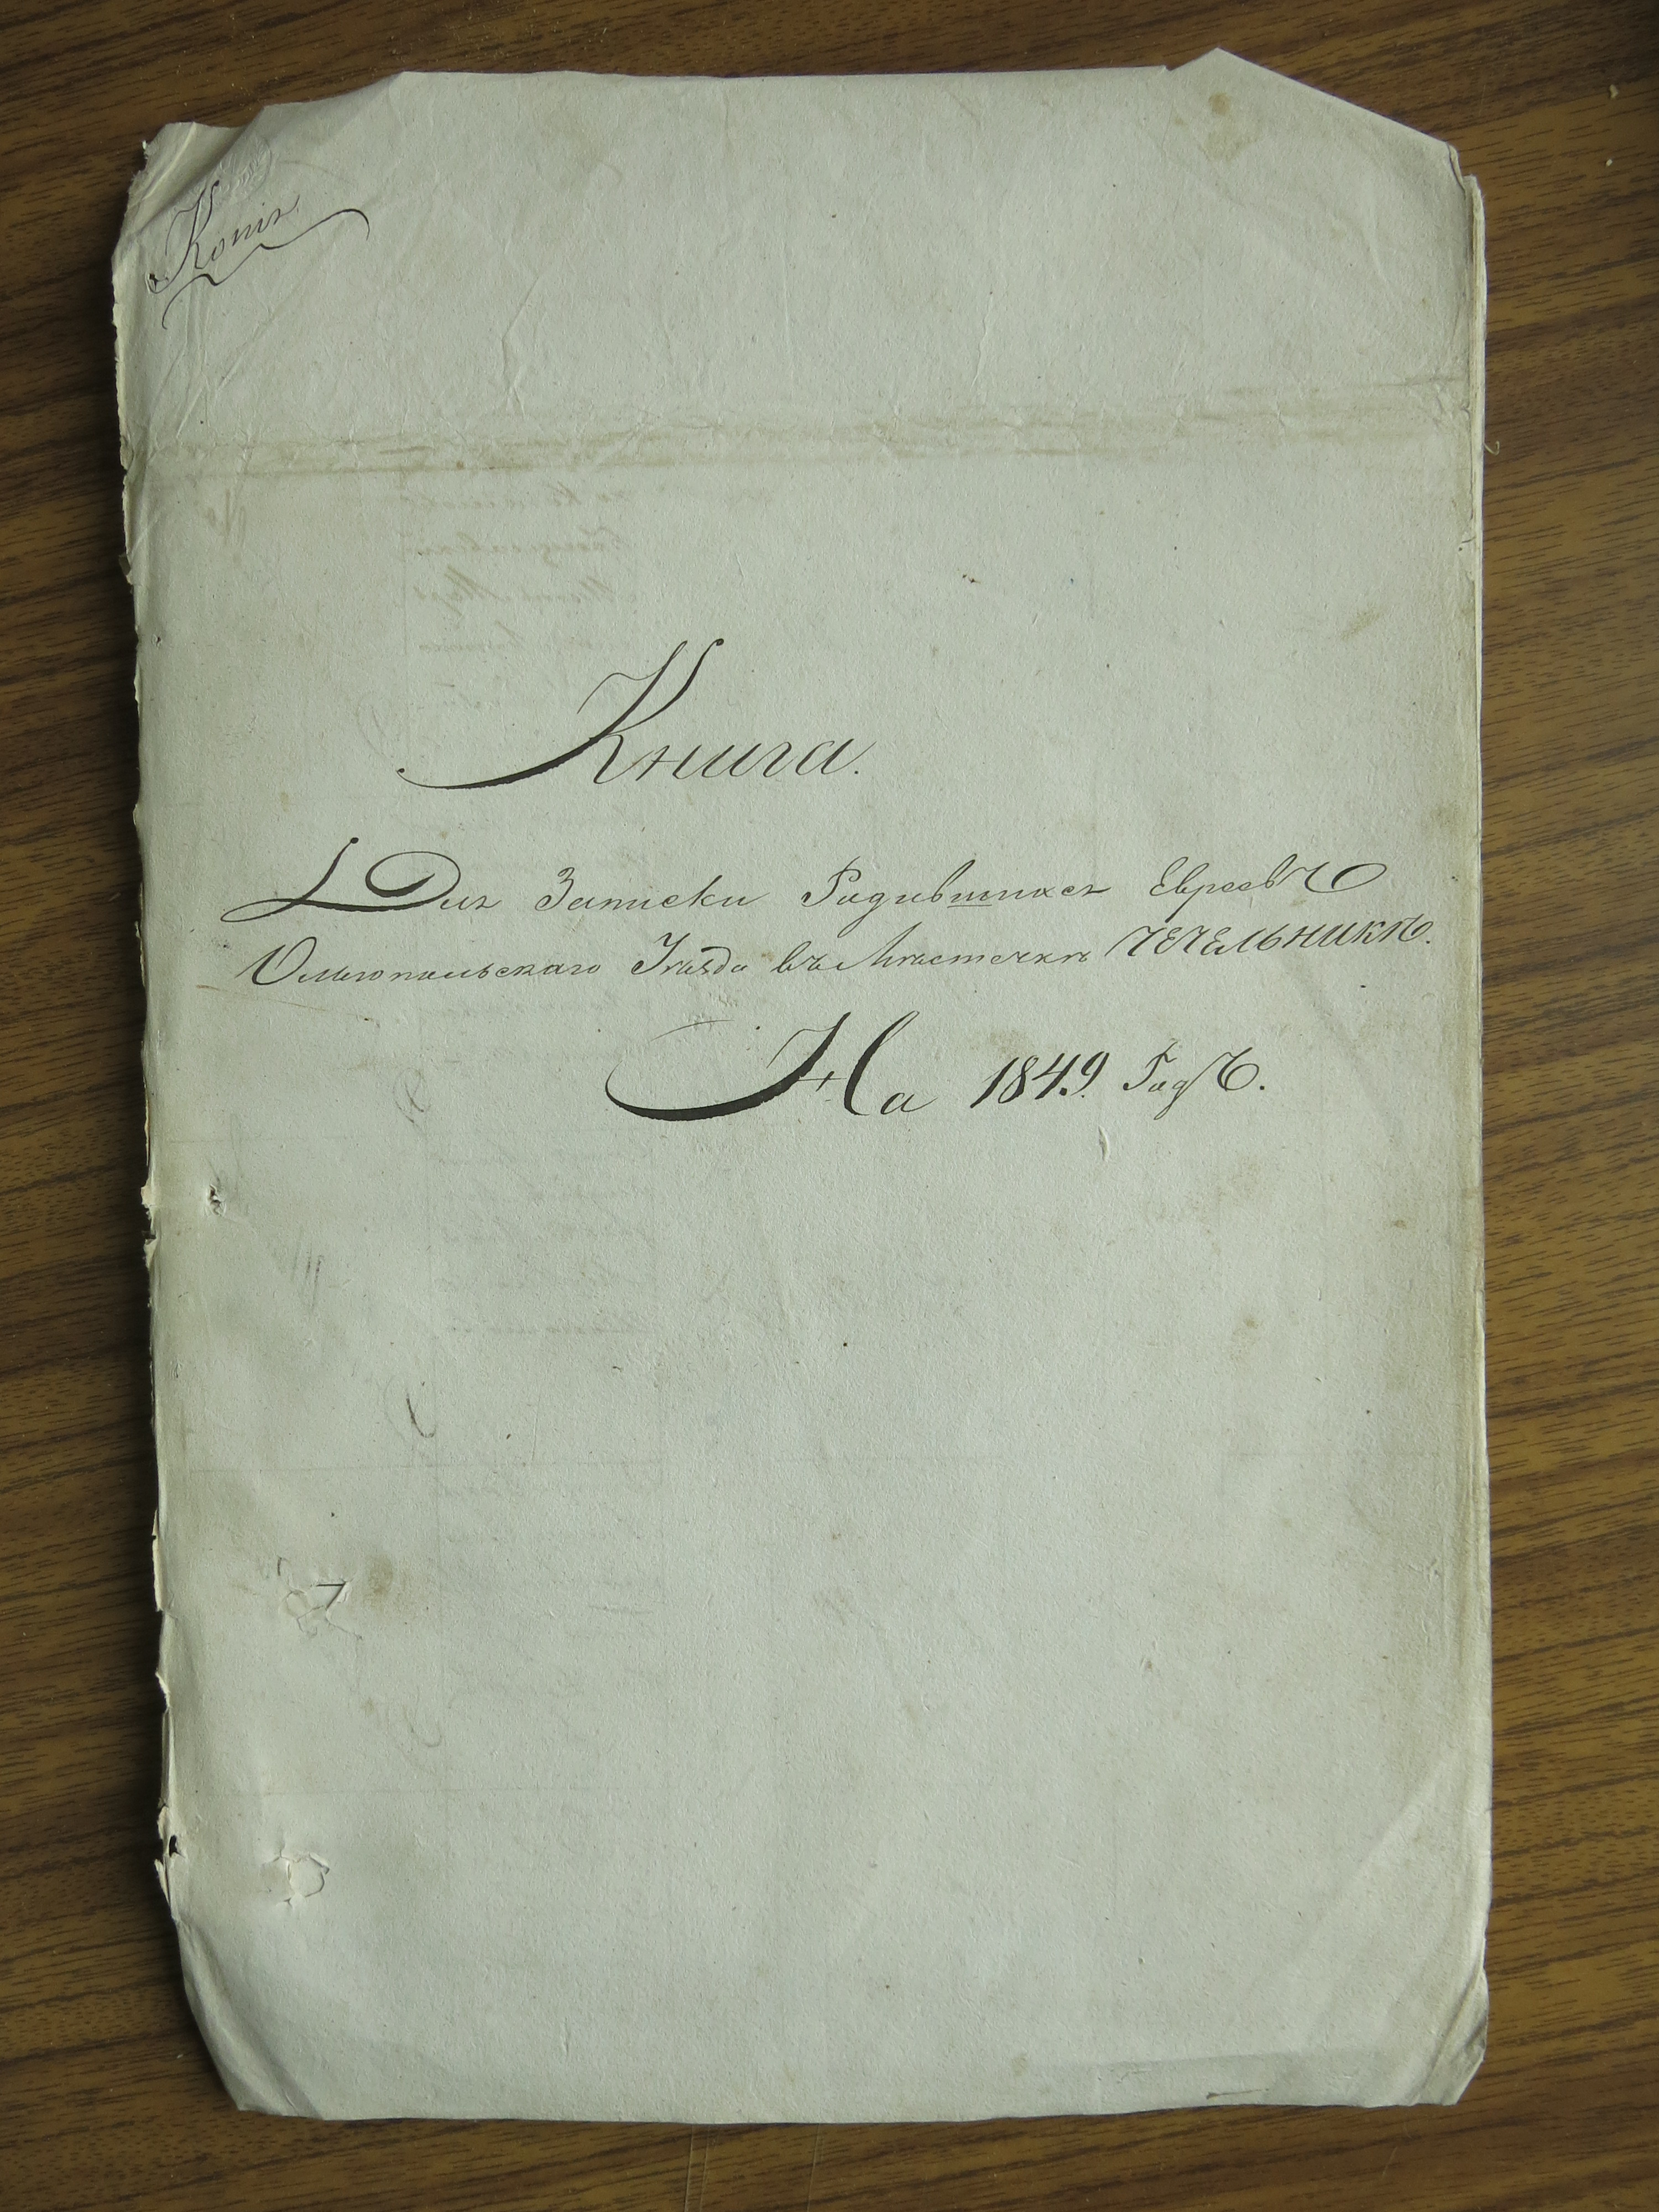 Копія
Книга.
Для Записки Родившихся Евреевъ
Ольгопольскаго Уѣзда въ Мѣстечкѣ ЧЕЧЕЛЬНИКѢ.
На 1849. Годъ.